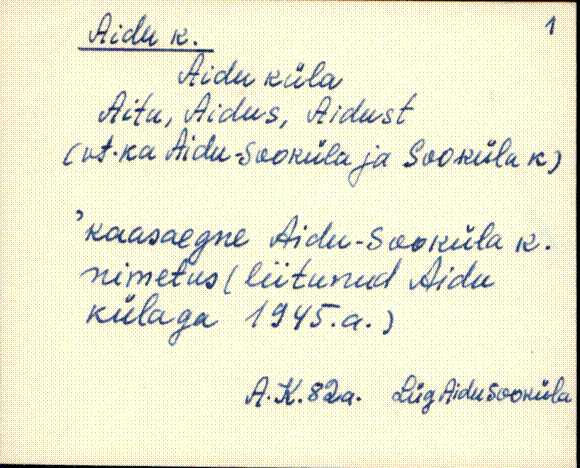 1
Aidu k.
Aidu küla
Aitu, Aidus, Aidust
(vt. ka Aidu-Sooküla ja Sooküla k)
'kaasaegne Aidu-Sooküla k.
nimetus (liitunud Aidu
külaga 1945. a.)
A. K. 82a. Lüg Aidu Sooküla